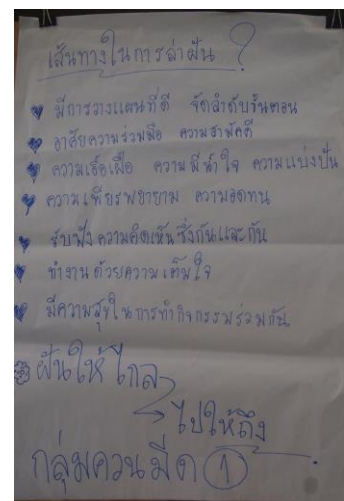 เส้นทางในการล่าฝัน ?
มีการวางแผนที่ดี จัดลำดับขั้นตอน
อาศัยความร่วมมือ ความสามัคคี
ความเอื้อเฟื้อ ความมีน้ำใจ ความแบ่งปัน
ความเพียรพยายาม ความอดทน
รับฟังความคิดเห็นซึ่งกันและกัน
ทำงานด้วยความเต็มใจ
มีความสุขในการทำกิจกรรมร่วมกัน
ฝันให้ไกล
ไปให้ถึง
กลุ่มควนมีด 1